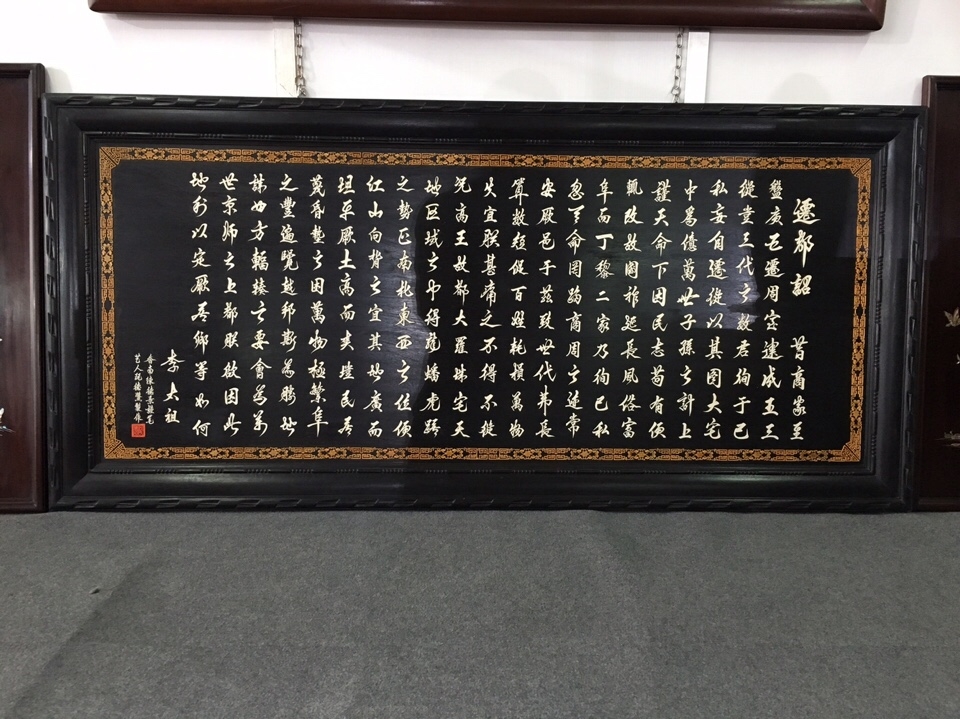 遷都詔 昔商家至
盤庚五遷周室逮成王三
徙豈三代之数君徇于己
私妄自遷徙以其圖大宅
中爲億萬世子孫之計上
謹天命下因民志苟有便
輒改故國祚延長風俗富
阜而丁黎二家乃徇己私
忽天命罔蹈商周之迹常
安厥邑于茲致世代弗長
算数短促百姓耗損萬物
失宜朕甚痛之不得不徙
況高王故都大羅城宅天
地區域之中得龍蟠虎踞
之勢正南北東西之位便
江山向背之宜其地廣而
坦平厥土高而爽塏民居
蔑昏墊之困萬物極繁阜
之豐遍覽越邦斯爲勝地
誠四方輻輳之要會爲萬
世京師之上都朕欲因此
地利以定厥居卿等如何
李太祖